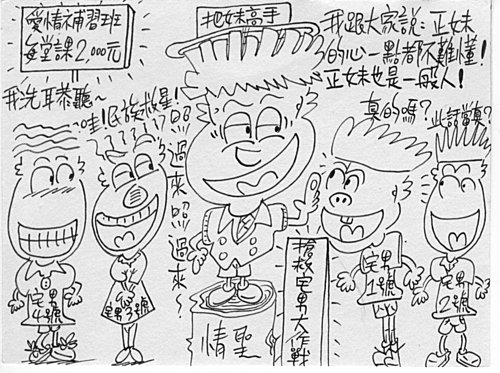 愛情補習班
每堂課2,000元
把妹高手
我跟大家說:正妹
的心一點都不難懂!
正妹也是一般人!
真的嗎?
此話當真?
我洗耳恭聽~
哇!民族救星!
照過來照過來~
搶救宅男大作戰
情聖
宅男4號
宅男3號
宅男1號
宅男2號